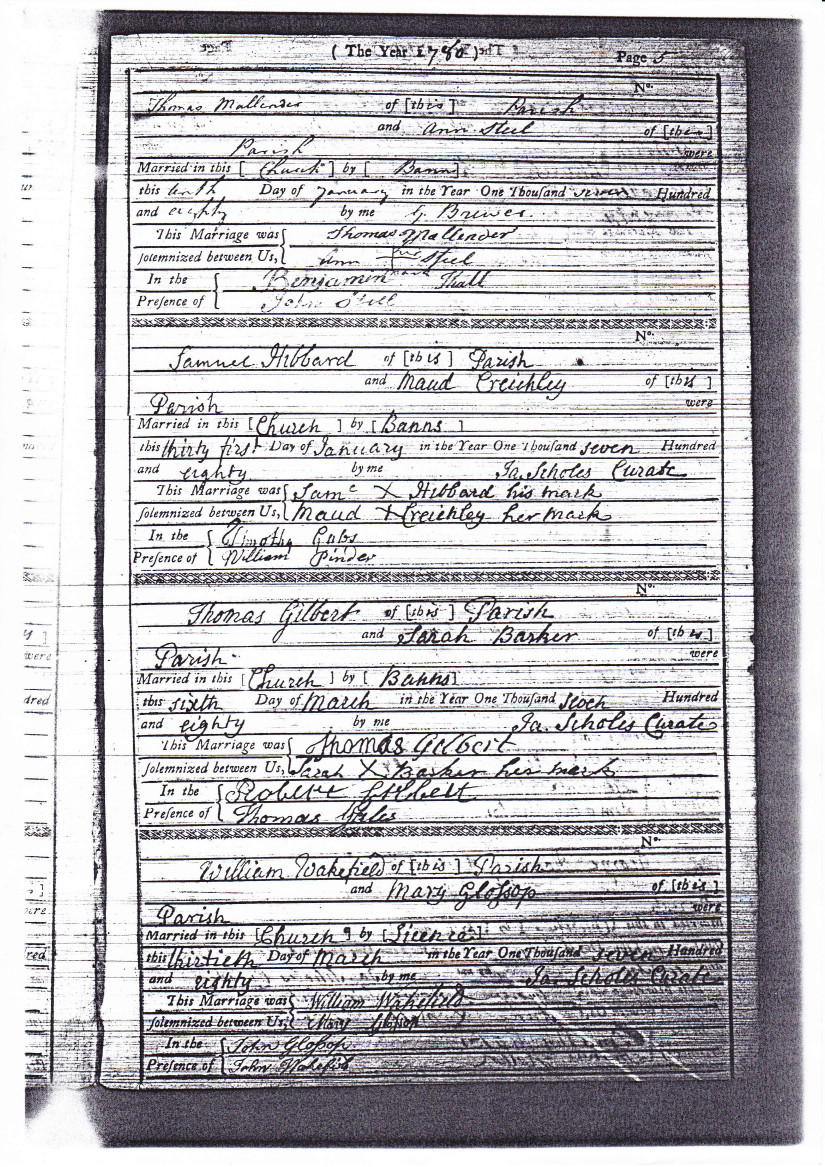 ( The Year 1780 ) Page 5
No.
Thomas Mallender of [this] Parish
and Ann Steel of [this]
Parish were
Married in this [ Church ] by [ Banns ]
this tenth Day of January in the Year One Thouſand seven Hundred
and eighty by me G. Brewer
This Marriage was { Thomas Mallender
ſolemnized between Us, { Ann Steel
mark
In the { Benjamin
Preſence of { John Steel
No.
Samuel Hibbard of [this] Parish
and Maud Creichley of [this ]
Parish were
Married in this [ Church ] by [ Banns ]
this thirty first Day of January in the Year One Thouſand seven Hundred
and eighty by me Ja. Scholes Curate
This Marriage was { Sam X Hibbard his mark
ſolemnized between Us, { Maud + Creichley her mark
In the { Timothy Gubs
Preſence of { William Pinder
No.
Thomas Gilbert of [this ] Parish
and Sarah Barker of [this ]
Parish were
Married in this [ Church ] by [ Banns]
this sixth Day of March in the Year One Thouſand seven Hundred
and eighty by me Ja. Scholes Curate
This Marriage was { Thomas Gelbert
ſolemnized between Us, { Sarah X Barker her mark
In the { Robert Gelbert
Preſence of { Thomas
No.
William Wakefield of [this ] Parish
and Mary Gloſsop of [this ]
Parish were
Married in this [Church ] by [Licence]
this thirtieth Day of March in the Year One Thouſand seven Hundred
and eighty by me Ja. Scholes Curate
This Marriage was { William Wakefield
ſolemnized between Us, { Mary Gloſsop
In the { John Gloſsop
Preſence of { John Wakefield